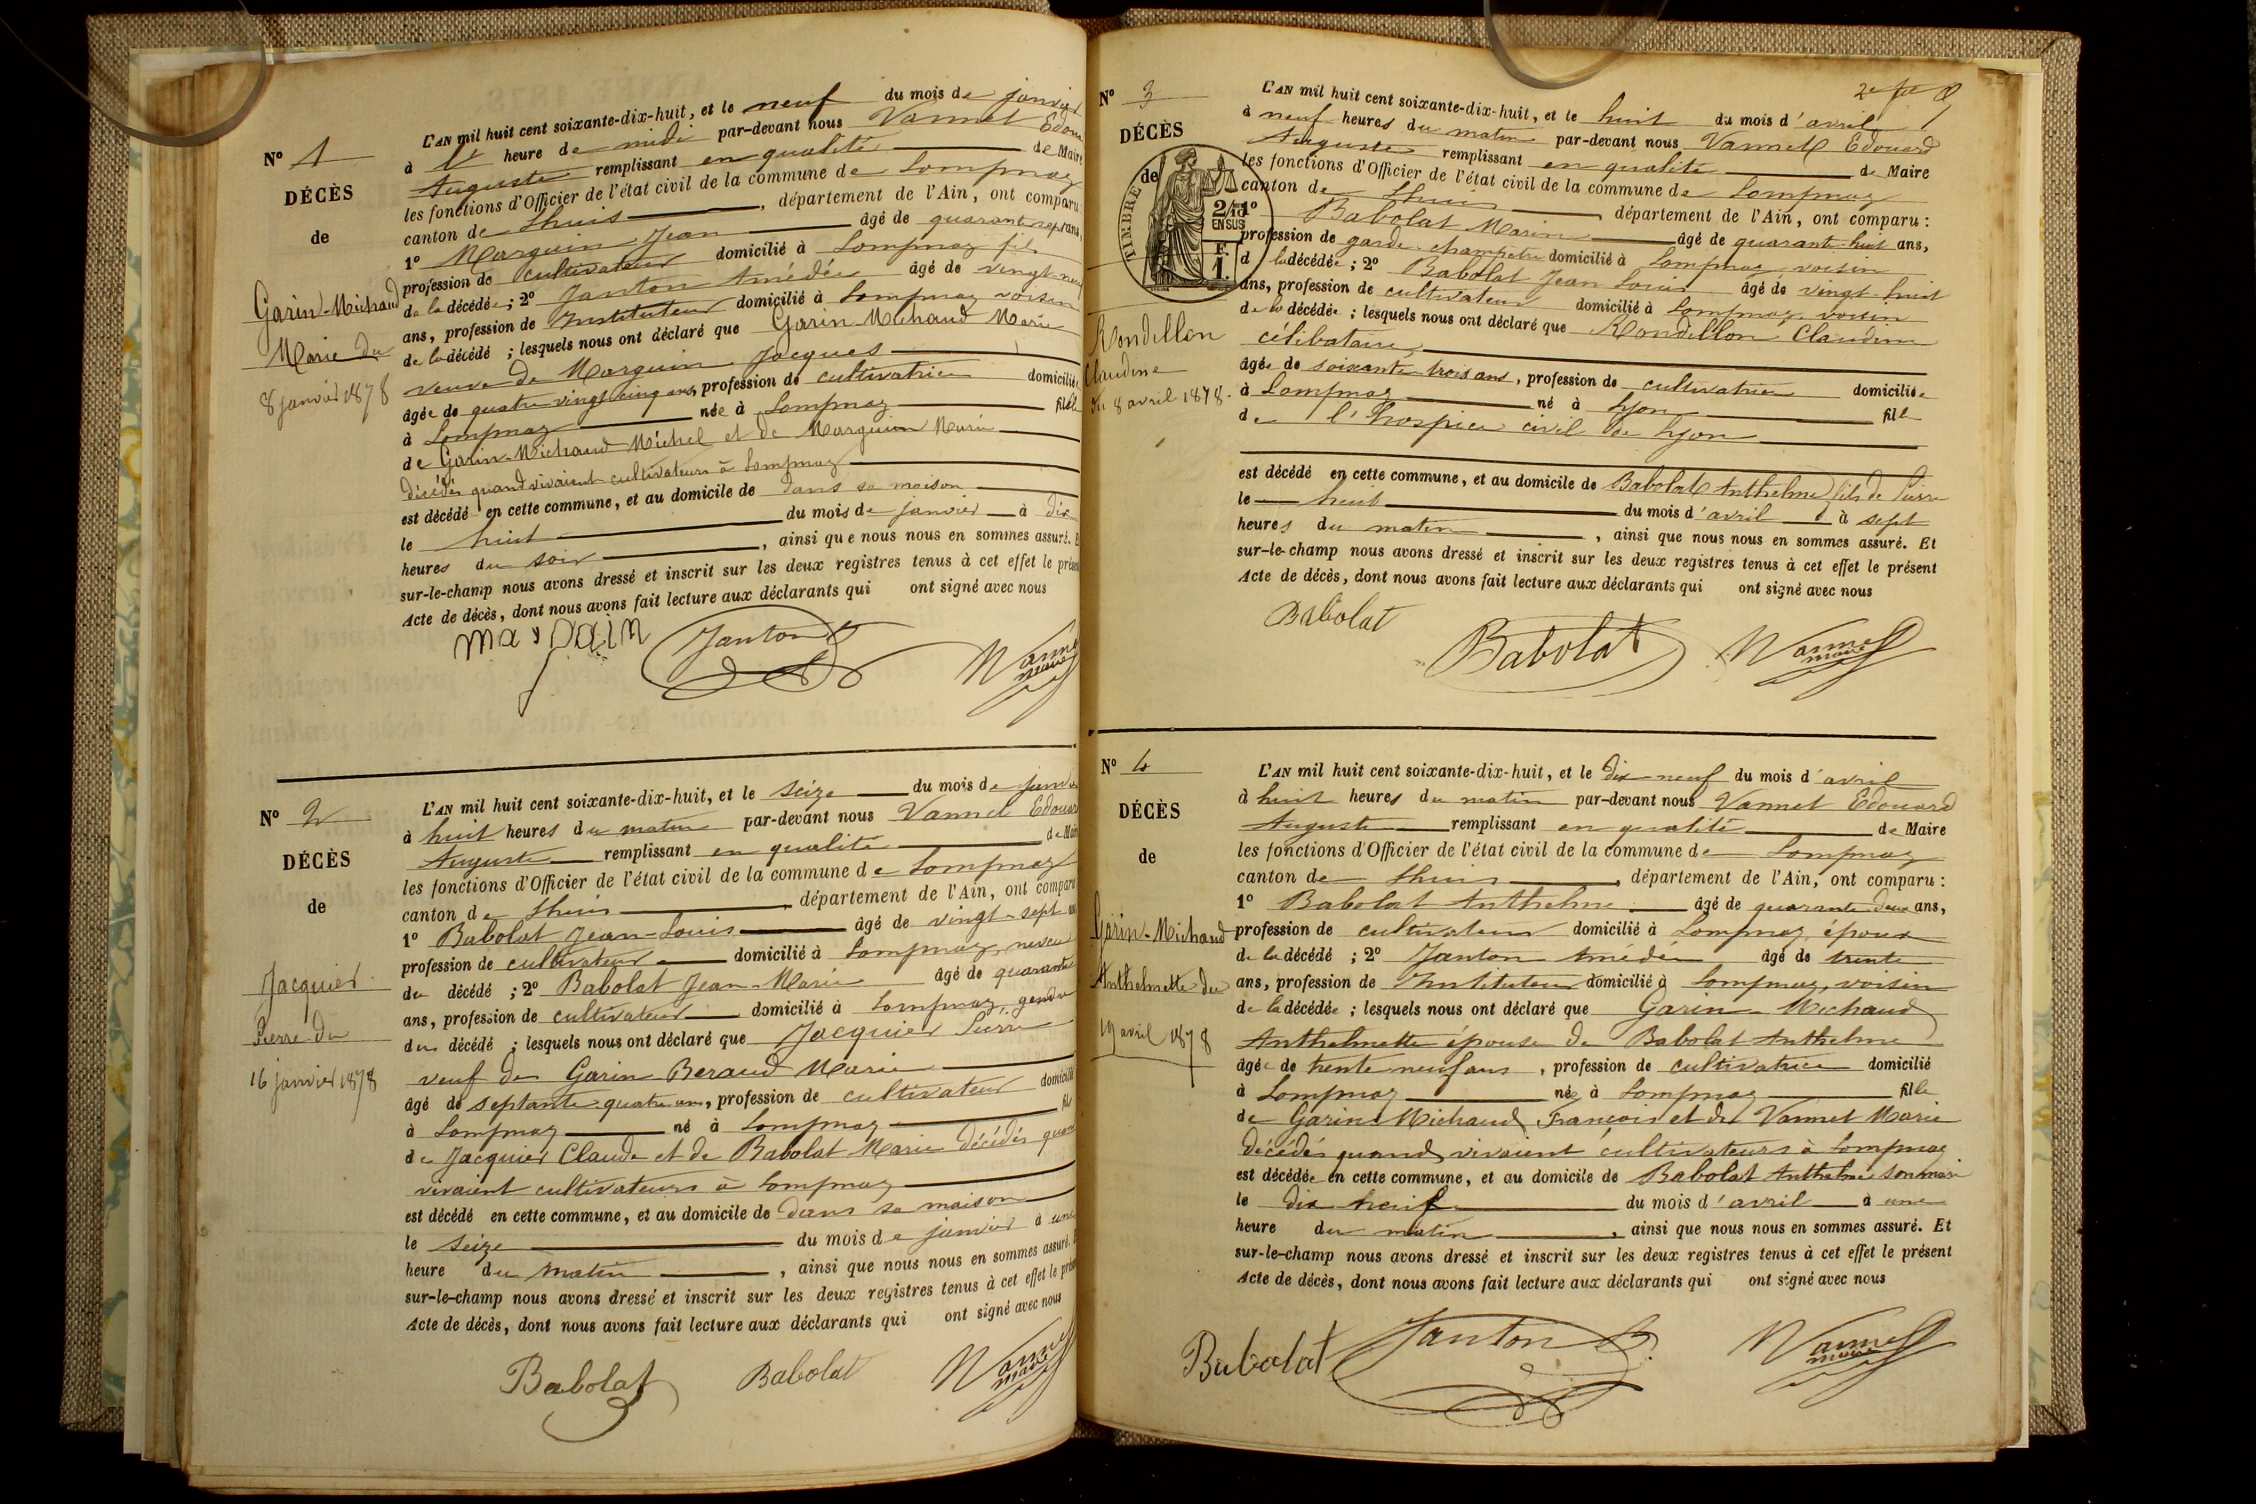 N° 1
DÉCÈS
de
Garin-Michaud
Marie du
8 janvier 1878
L'AN mil huit cent soixante-dix-huit, et le neuf du mois de janvier
à l' heure de midi par-devant nous Vannet Edoua
Auguste remplissant en qualité de Maire
les fonctions d'Officier de l'état civil de la commune de Lompnaz
canton de Lhuis, département de l'Ain, ont comparu :
1° Marguin Jean âgé de quarante sept ans,
profession de cultivateur domicilié à Lompnaz fils
de la décédée ; 2° Janton Amédée âgé de vingt-neuf
ans, profession de Instituteur domicilié à Lompnaz voisin
de la décédé ; lesquels nous ont déclaré que Garin-Michaud Marie
veuve de Marguin Jacques
âgée de quatre vingt cinq ans, profession de cultivatrice domiciliée
à Lompnaz née à Lompnaz fille
de Garin-Michaud Michel et de Marguin Marie
décédés quand vivaient cultivateurs à Lompnaz
est décédé en cette commune, et au domicile de dans sa maison
le huit du mois de janvier à dix
heures du soir, ainsi que nous nous en sommes assuré. E
sur-le-champ nous avons dressé et inscrit sur les deux registres tenus à cet effet le présen
Acte de décès, dont nous avons fait lecture aux déclarants qui ont signé avec nous
Janton
Vannet
maire
N° 2
DÉCÈS
de
Jacquier
Pierre du
16 janvier 1878
L'AN mil huit cent soixante-dix-huit, et le seize du mois de janvi
à huit heures du matin par-devant nous Vannet Edouar
Auguste remplissant en qualité de Mair
les fonctions d'Officier de l'état civil de la commune de Lompnaz
canton de Lhuis, département de l'Ain, ont comparu
1° Babolat Jean-Louis âgé de vingt-sept ans
profession de cultivateur domicilié à Lompnaz, neveu
du décédé ; 2° Babolat Jean-Marie âgé de quarante
ans, profession de cultivateur domicilié à Lompnaz, gendre
du décédé ; lesquels nous ont déclaré que Jacquier Pierre
veuf de Garin Beraud Marie
âgé de septante-quatre ans, profession de cultivateur domicilié
à Lompnaz né à Lompnaz fils
de Jacquier Claude et de Babolat Marie décédés quand
vivaient cultivateurs à Lompnaz
est décédé en cette commune, et au domicile de dans sa maison
le seize du mois de janvier à une
heure du matin, ainsi que nous nous en sommes assuré. E
sur-le-champ nous avons dressé et inscrit sur les deux registres tenus à cet effet le présen
Acte de décès, dont nous avons fait lecture aux déclarants qui ont signé avec nous
Babolat Babolat Vannet
maire
N° 3
DÉCÈS
de
TIMBRE
2/10 EN SUS
F. 1.
Rondillon
Claudine
du 8 avril 1878.
L'AN mil huit cent soixante-dix-huit, et le huit du mois d'avril
à neuf heures du matin par-devant nous Vannet Edouard
Auguste remplissant en qualité de Maire
les fonctions d'Officier de l'état civil de la commune de Lompnaz
canton de Lhuis, département de l'Ain, ont comparu :
1° Babolat Marin âgé de quarante-huit ans,
profession de garde-champêtre domicilié à Lompnaz, voisin
d la décédée ; 2° Babolat Jean Louis âgé de vingt-huit
ans, profession de cultivateur domicilié à Lompnaz, voisin
de la décédée ; lesquels nous ont déclaré que Rondillon Claudine
célibataire
âgée de soixante-trois ans, profession de cultivatrice domiciliée
à Lompnaz né à Lyon fille
de l'hospice civil de Lyon
est décédé en cette commune, et au domicile de Babolat Anthelme fils de Pierre
le huit du mois d'avril à sept
heures du matin, ainsi que nous nous en sommes assuré. Et
sur-le-champ nous avons dressé et inscrit sur les deux registres tenus à cet effet le présent
Acte de décès, dont nous avons fait lecture aux déclarants qui ont signé avec nous
Babolat
Babolat Vannet
maire
N° 4
DÉCÈS
de
Garin-Michaud
Anthelmette du
19 avril 1878
L'AN mil huit cent soixante-dix-huit, et le dix-neuf du mois d'avril
à huit heures du matin par-devant nous Vannet Edouard
Auguste remplissant en qualité de Maire
les fonctions d'Officier de l'état civil de la commune de Lompnaz
canton de Lhuis, département de l'Ain, ont comparu :
1° Babolat Anthelme âgé de quarante deux ans,
profession de cultivateur domicilié à Lompnaz, époux
de la décédé ; 2° Janton Amédée âgé de trente
ans, profession de Instituteur domicilié à Lompnaz, voisin
de la décédée ; lesquels nous ont déclaré que Garin-Michaud
Anthelmette épouse de Babolat Anthelme
âgée de trente neuf ans, profession de cultivatrice domicilié
à Lompnaz née à Lompnaz fille
de Garin-Michaud François et de Vannet Marie
décédés quand vivaient cultivateurs à Lompnaz
est décédée en cette commune, et au domicile de Babolat Anthelme son mari
le dix neuf du mois d'avril à une
heure du matin, ainsi que nous nous en sommes assuré. Et
sur-le-champ nous avons dressé et inscrit sur les deux registres tenus à cet effet le présent
Acte de décès, dont nous avons fait lecture aux déclarants qui ont signé avec nous
Babolat Janton Vannet
maire